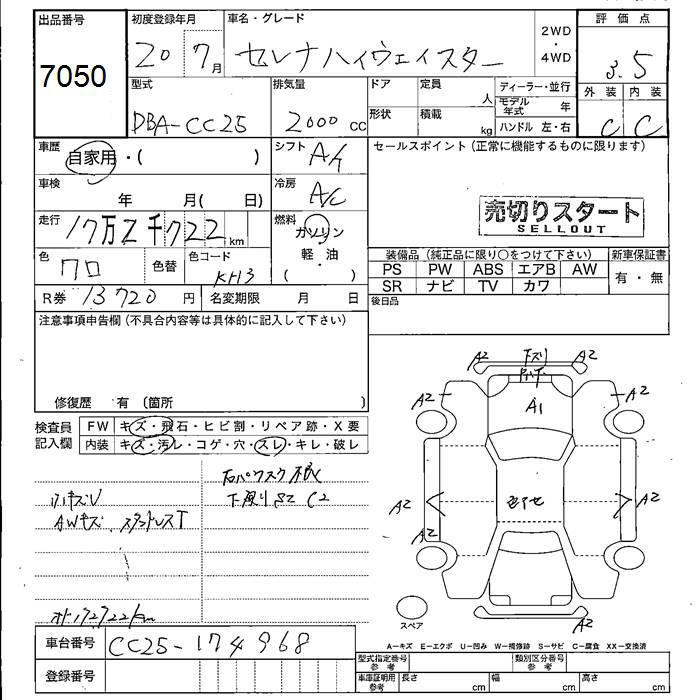 出品番号 初度登録年月 車名・グレード 2WD ・ 4WD 評価点
7050 20 7月 セレナハイウェイスター 3.5
型式 排気量 ドア 定員 人 ディーラー・並行 外装 内装
DBA-CC25 2000 cc 形状 積載 kg モデル年式 年 C C
ハンドル 左・右
車歴 自家用・( ) シフト A/ セールスポイント(正常に機能するものに限ります)
車検 年 月( 日) 冷房 A/C
売切りスタート
SELLOUT
走行 17万2千722km 燃料 ガソリン
軽・油
( )
色 クロ 色替 色コード KH3
装備品(純正品に限り○をつけて下さい) 新車保証書
PS PW ABS エアB AW 有・無
SR ナビ TV カワ
R券 13720円 名変期限 月 日 後日品
注意事項申告欄(不具合内容等は具体的に記入して下さい)
修復歴 有(箇所 )
検査員記入欄 FW キズ・飛石・ヒビ割・リペア跡・X要
内装 キズ・汚レ・コゲ・穴・スレ・キレ・破レ
下廻りサビ C2
AWキズ
A2 A2
A2 A1 A2
A2 A2
A2
スペア A2
A-キズ E-エクボ U-凹み W-補修跡 S-サビ C-腐食 XX-交換済
車台番号 CC25-174968
登録番号
型式指定番号 参考 類別区分番号 参考
車庫証明用 参考 長さ cm 幅 cm 高さ cm